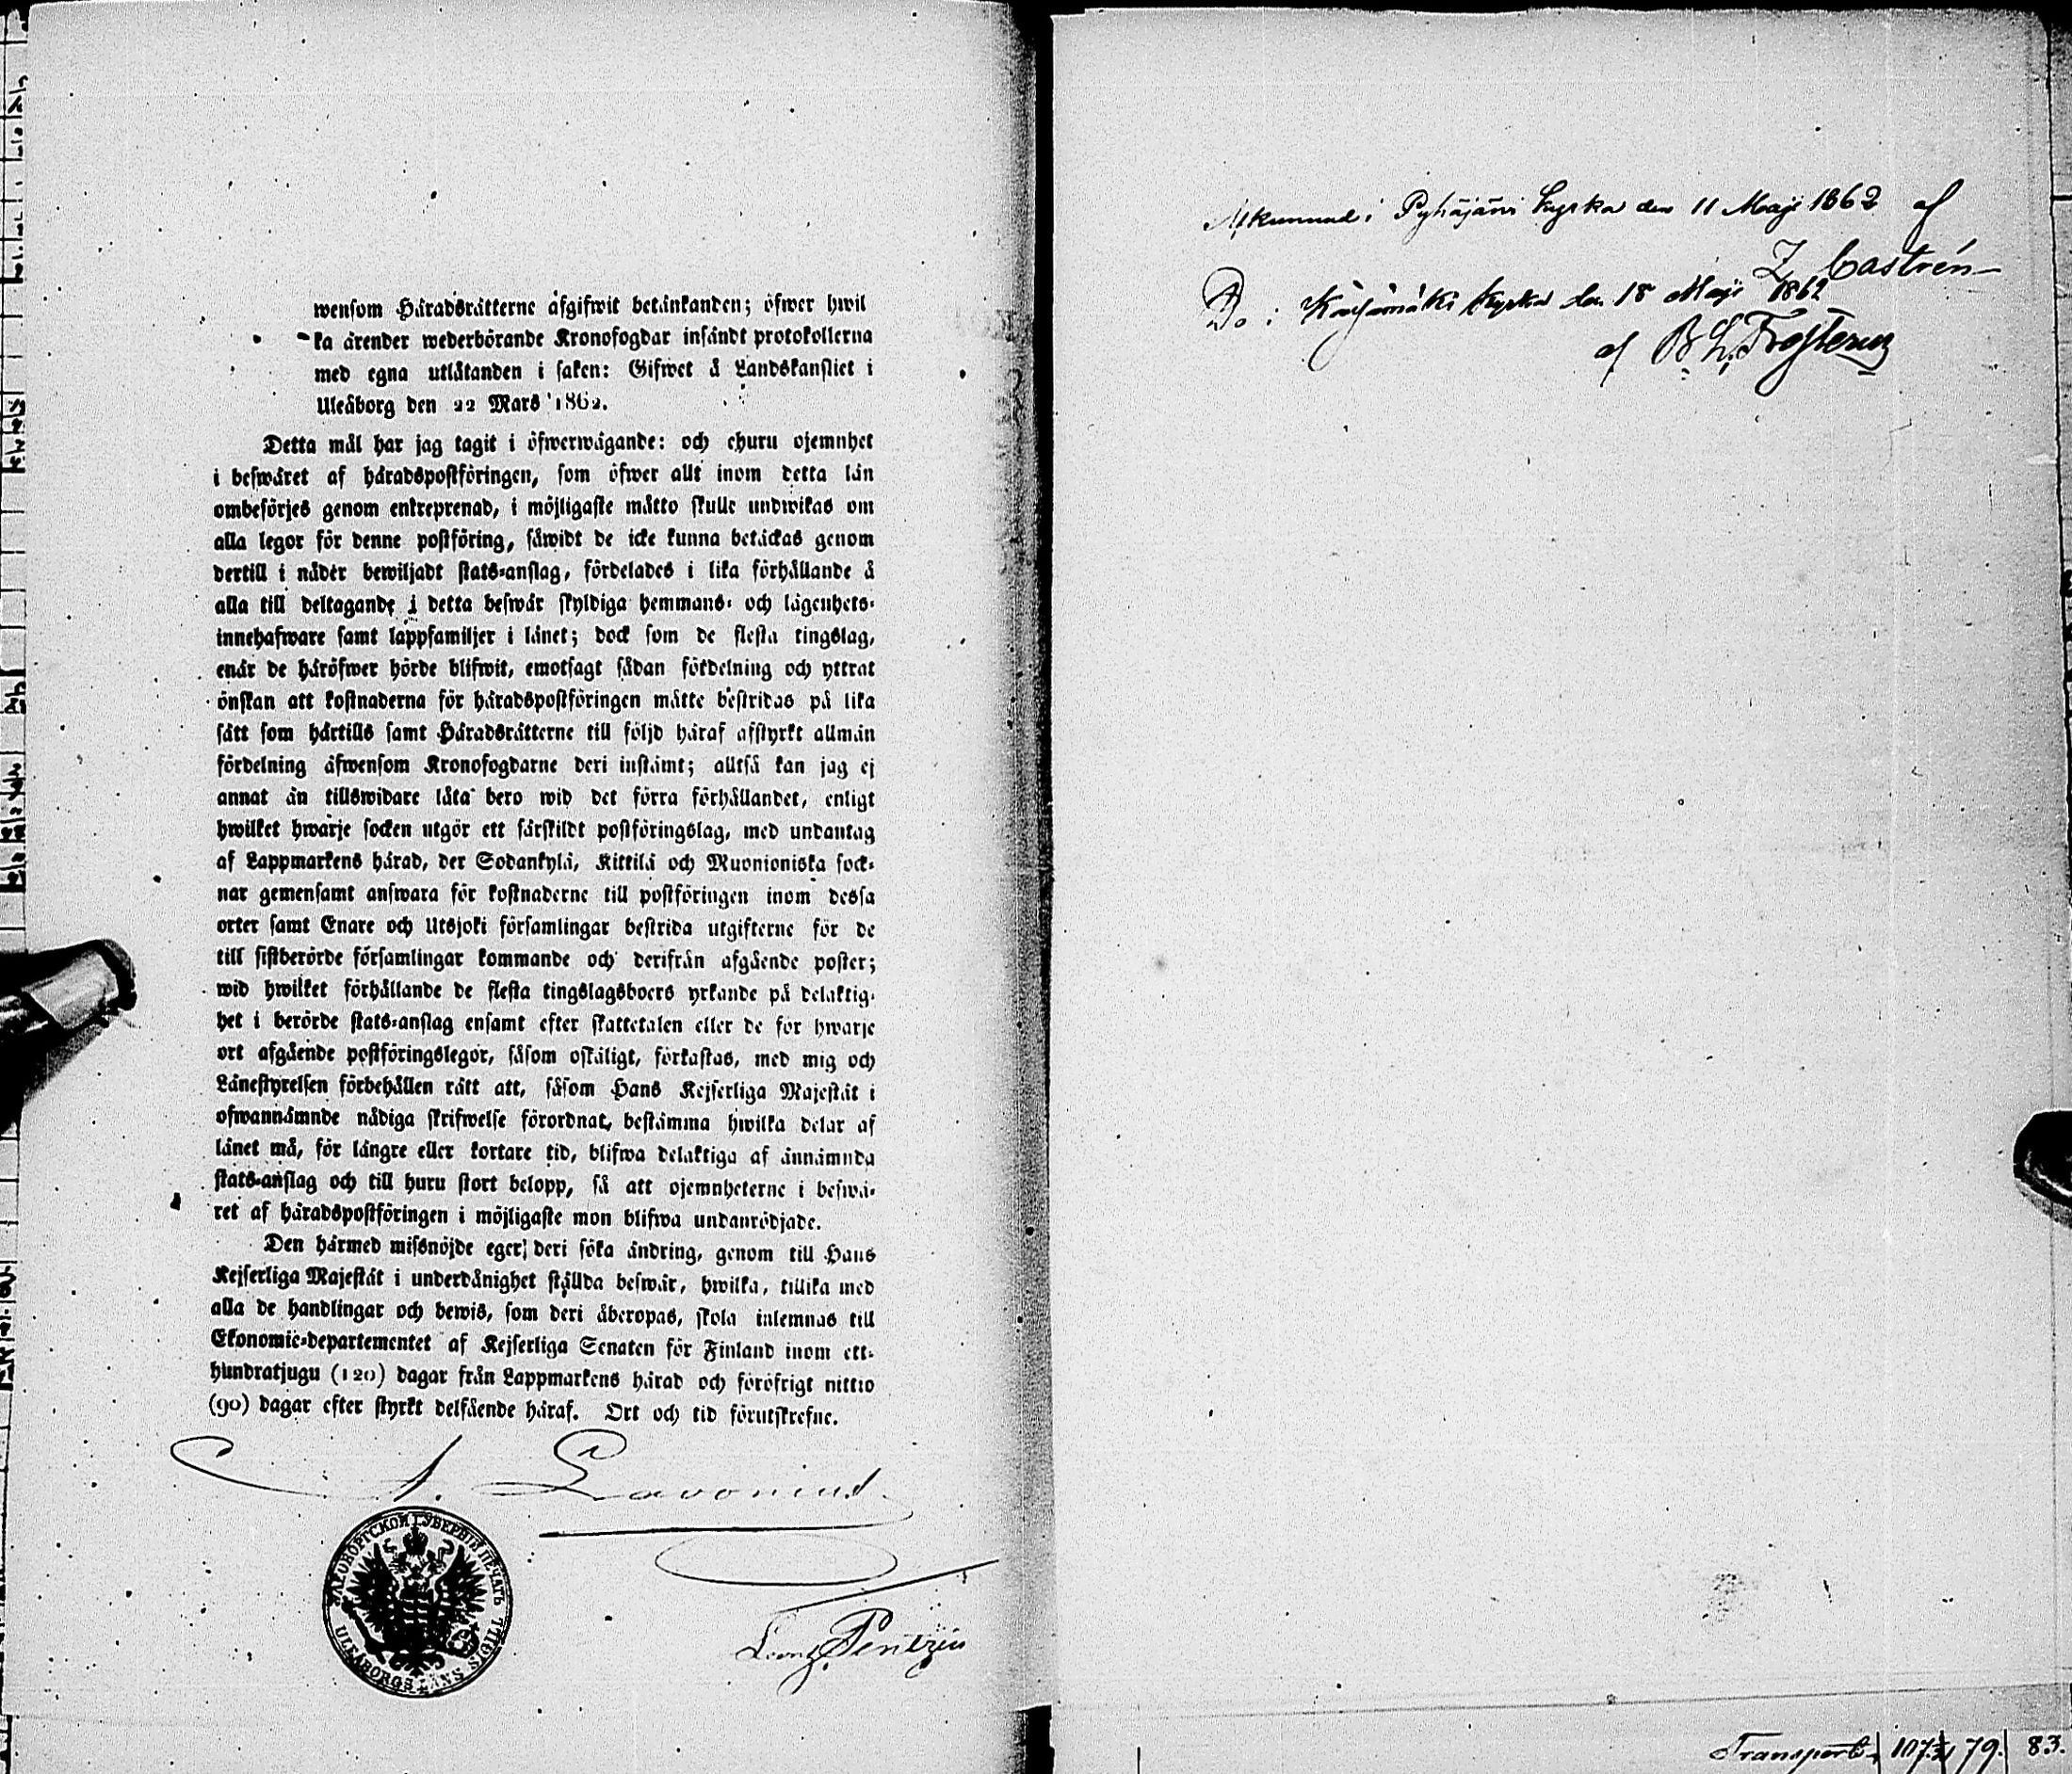 wensom Häradsrätterne äfgifwit betänkanden; öfwer hwil
ka ärender wederbörande Kronofogdar insändt protokollerna
med egna utlåtanden i saken: Gifwet å Landskansliet i
Uleåborg den 22 Mars 1862.
Detta mål har jag tagit i öfwerwägande: och ehuru ojemnhet
i beswäret af häradspostföringen, som öfwer allt inom detta län
ombesörjes genom entreprenad, i möjligaste måtto skulle undwikas om
alla legor för denne postföring, såwidt de icke kunna betäckas genom
dertill i nåder bewiljadt stats-anslag, fördelades i lika förhållande å
alla till deltagande i detta beswär skyldiga hemmans- och lägenhets-
innehafware samt lappfamiljer i länet; dock som de flesta tingslag,
enär de häröfwer hörde blifwit, emotsagt sådan fördelning och yttrat
önskan att kostnaderna för häradspostföringen måtte bestridas på lika
sätt som härtills samt Häradsrätterne till följd häraf afstyrkt allmän
fördelning äfwensom Kronofogdarne deri instämt; alltså kan jag ej
annat än tillswidare låta bero wid det förra förhållandet, enligt
hwilket hwarje socken utgör ett särskildt postföringslag, med undantag
af Lappmarkens härad, der Sodankylä, Kittilä och Muonioniska sock-
nar gemensamt answara för kostnaderne till postföringen inom dessa
orter samt Enare och Utsjoki församlingar bestrida utgifterne för de
till sistberörde församlingar kommande och derifrån afgående poster;
wid hwilket förhållande de flesta tingslagsboers yrkande på delaktig-
het i berörde stats-anslag ensamt efter skattetalen eller de för hwarje
ort afgående postföringslegor, såsom oskäligt, förkastas, med mig och
Länestyrelsen förbehållen rätt att, såsom Hans Kejserliga Majestät i
ofwannämnde nådiga skrifwelse förordnat, bestämma hwilka delar af
länet må, för längre eller kortare tid, blifwa delaktiga af ännämnda
stats-anslag och till huru stort belopp, så att ojemnheterne i beswä-
ret af häradspostföringen i möjligaste mon blifwa undanrödjade.
Den härmed missnöjde eger deri söka ändring, genom till Hans
Kejserliga Majestät i underdånighet ställda beswär, hwilka, tillika med
alla de handlingar och bewis, som deri åberopas, skola inlemnas till
Ekonomie-departementet af Kejserliga Senaten för Finland inom ett-
hundratjugu (120) dagar från Lappmarkens härad och föröfrigt nittio
(90) dagar efter styrkt delfående häraf. Ort och tid förutskrefne.
A. Lavonius
УЛЕОБОРГСКОЙ ГУБЕРНІИ ПЕЧАТЬ
ULEÅBORGS LÄNS SIGILL
Pentzin
Afkunnad i Pyhäjärvi Kyrka den 11 Maji 1862 af
Z. Castrén
Do i Kärsämäki kyrka den 18 Maji 1862
af B. L. Frosterus
Transport 107 3/4 79. 83.